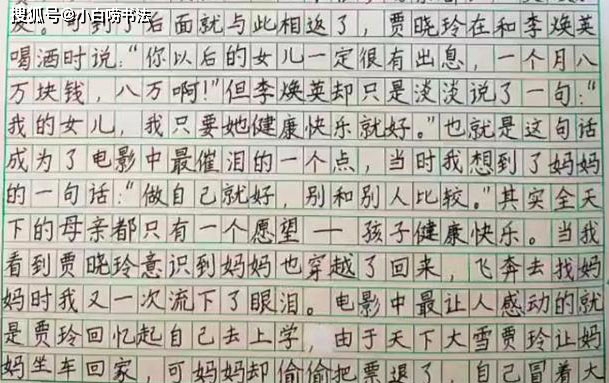 搜狐号@小白唠书法
到了后面就与此相返了，贾晓玲在和李焕英
喝酒时说：“你以后的女儿一定很有出息，一个月八
万块钱，八万啊！”但李焕英却只是淡淡说了一句：“
我的女儿，我只要她健康快乐就好。”也就是这句话
成为了电影中最催泪的一个点，当时我想到了妈妈
的一句话：“做自己就好，别和别人比较。”其实全天
下的母亲都只有一个愿望——孩子健康快乐。当我
看到贾晓玲意识到妈妈也穿越了回来，飞奔去找妈
妈时我又一次流下了眼泪。电影中最让人感动的就
是贾玲回忆起自己去上学，由于天下大雪贾玲让妈
妈坐车回家，可妈妈却偷偷把票退了，自己冒着大